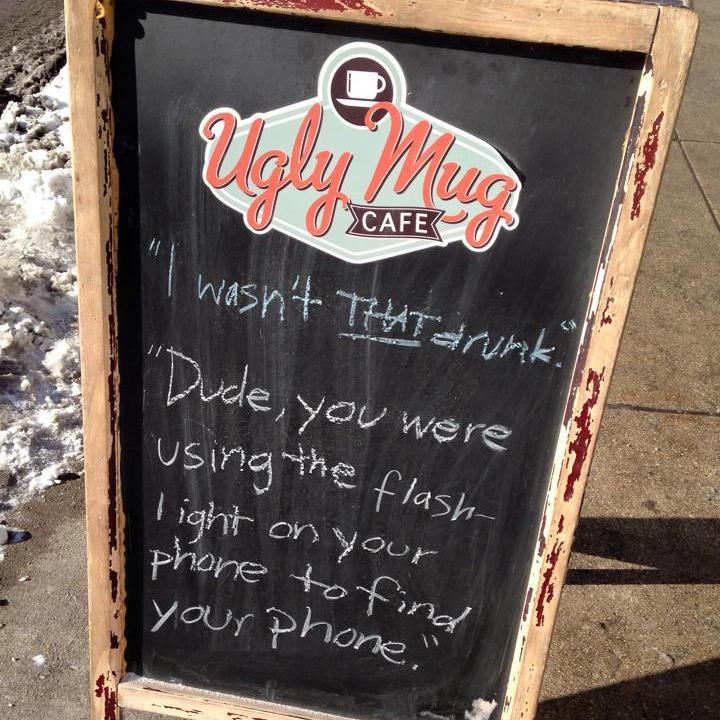 Ugly Mug
CAFE
"I wasn't THAT drunk."
"Dude, you were
using the flash-
light on your
phone to find
your phone."